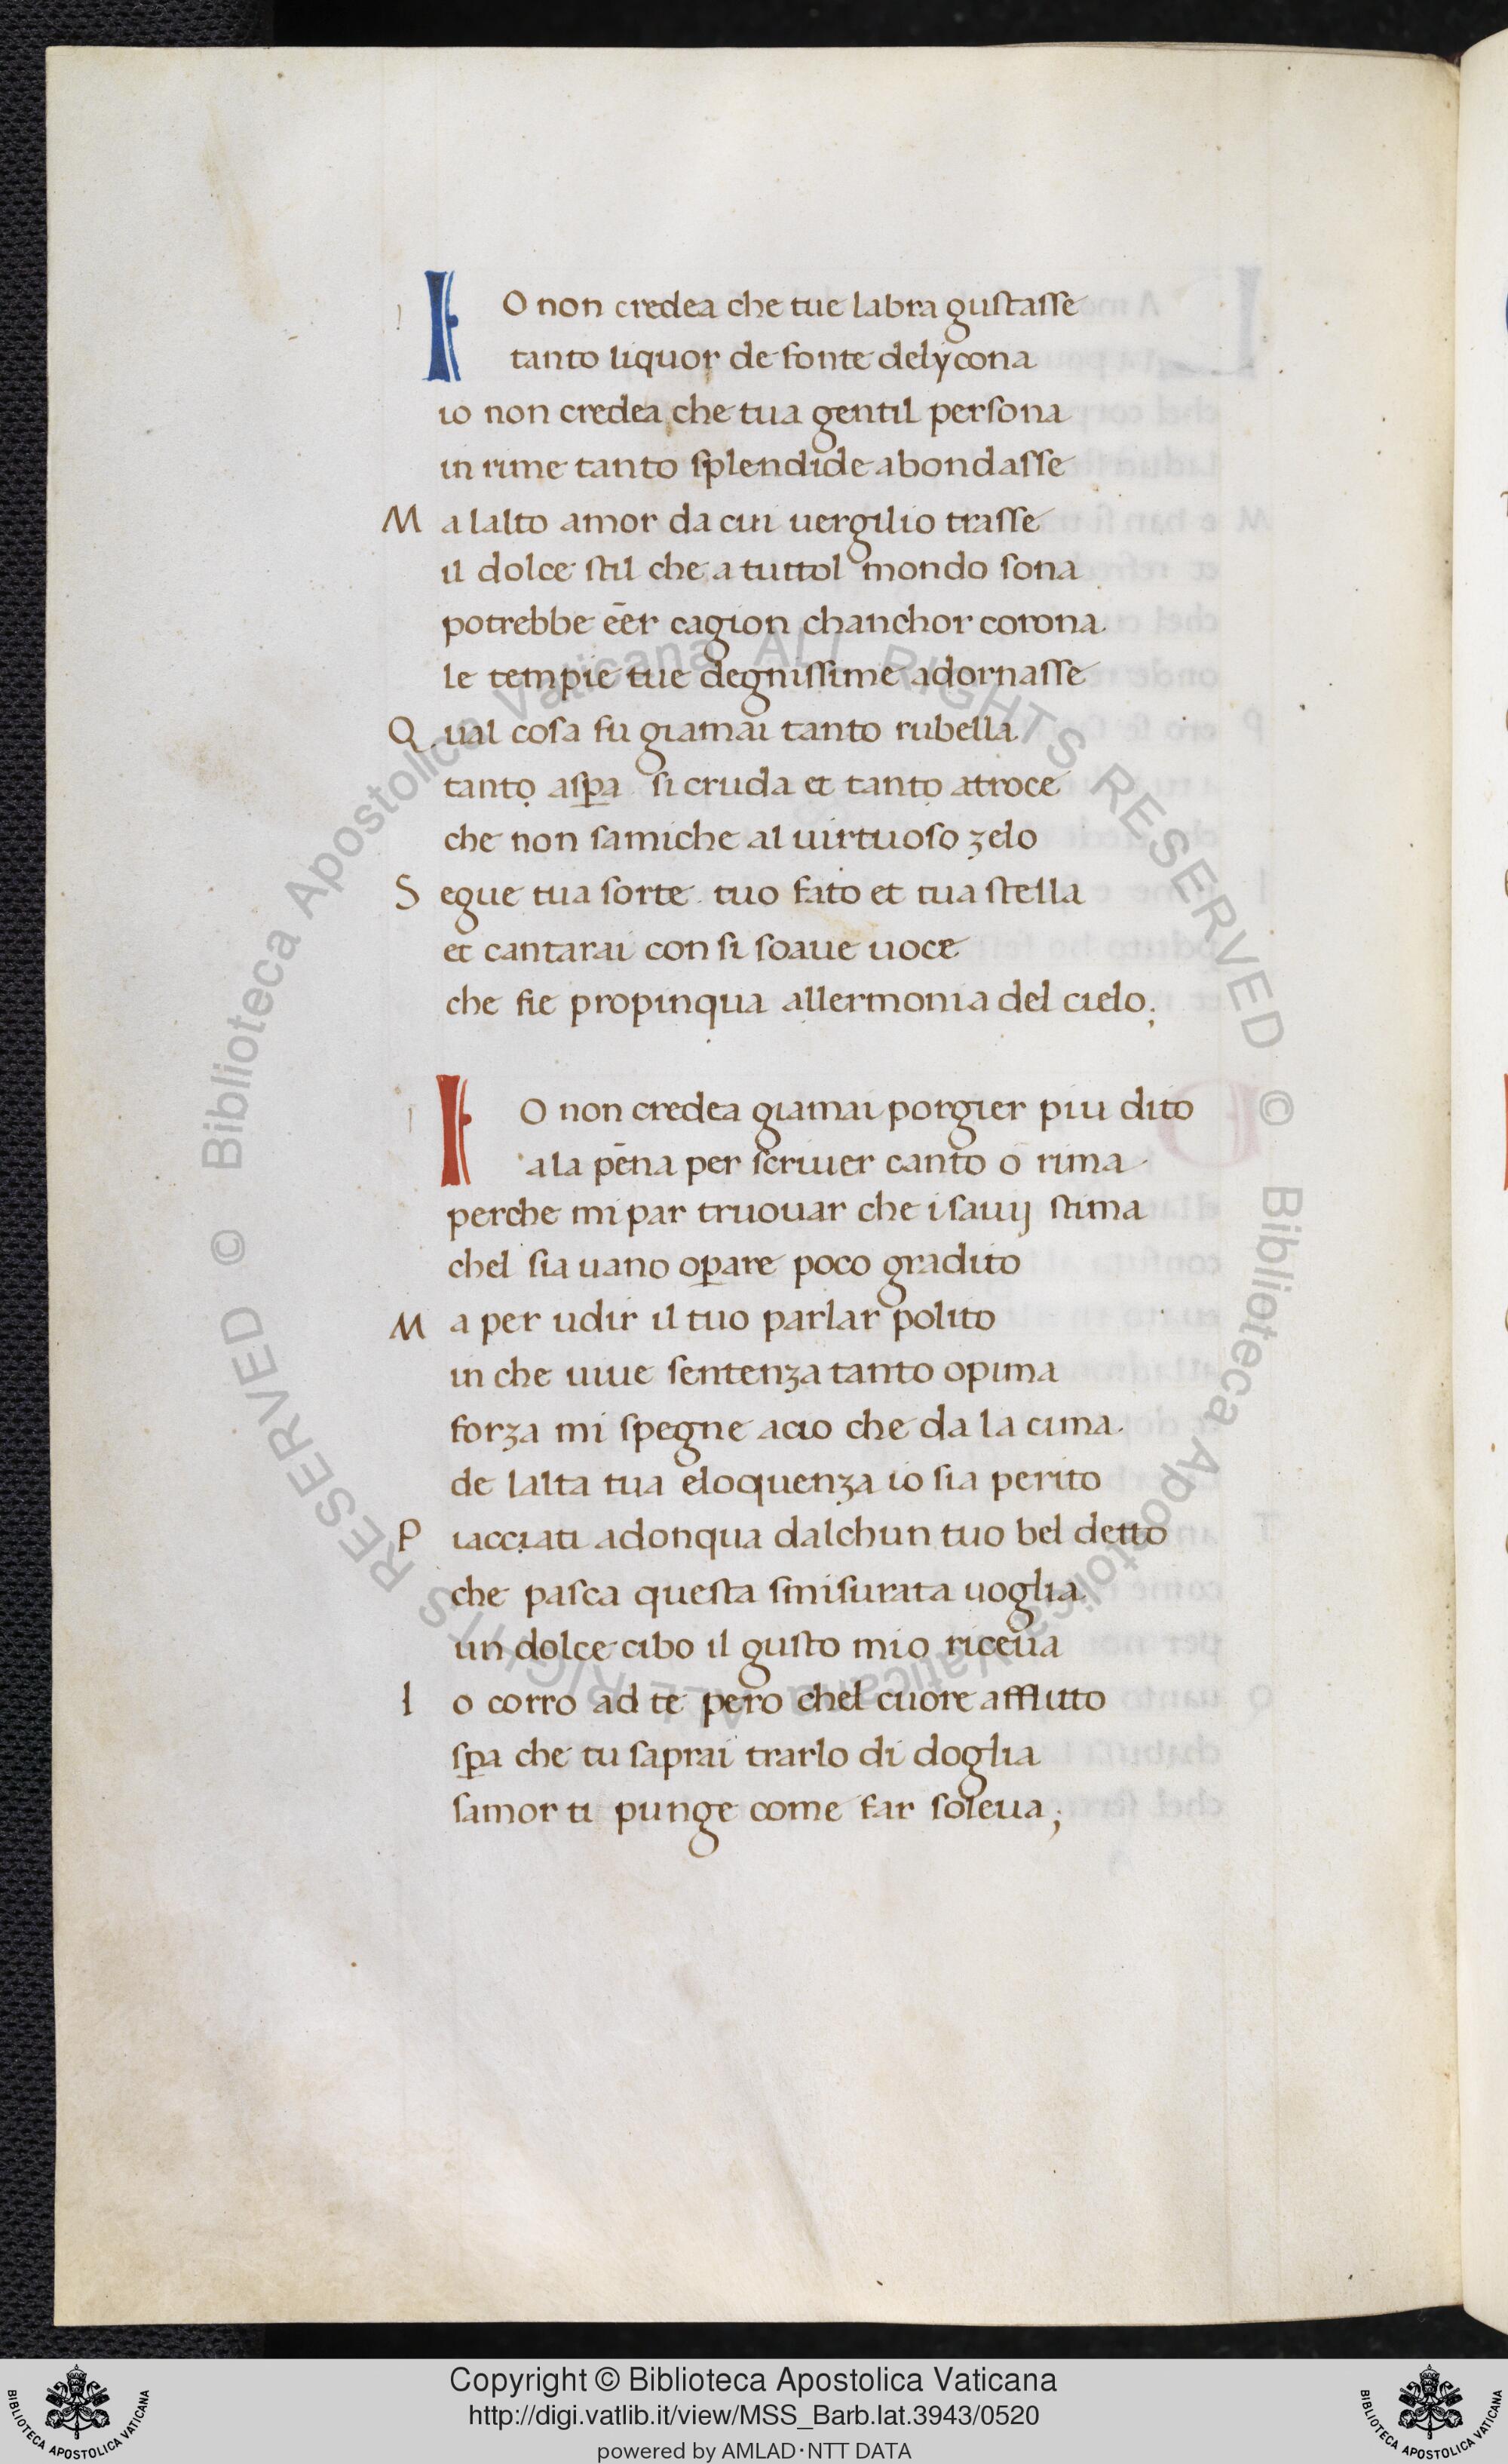 IO non credea che tue labra gustasse
tanto liquor de fonte delycona
io non credea che tua gentil persona
in rime tanto splendide abondasse
Ma lalto amor da cui uergilio trasse
il dolce stil che a tuttol mondo sona
potrebbe eēr cagion chanchor corona
le tempie tue degnissime adornasse
Qual cosa fu giamai tanto rubella
tanto asp̱a si cruda et tanto atroce
che non samiche al uirtuoso zelo
Segue tua sorte tuo fato et tua stella
et cantarai con si soaue uoce
che fie propinqua allermonia del cielo;
IO non credea giamai porgier piu dito
a la pēna per scriuer canto o rima
perche mi par truouar che i sauij stima
chel sia uano op̱are poco gradito
Ma per udir il tuo parlar polito
in che uiue sentenza tanto opima
forza mi spegne acio che da la cima
de lalta tua eloquenza io sia perito
Piacciati adonqua dalchun tuo bel detto
che pasca questa smisurata uoglia
un dolce cibo il gusto mio riceua
Io corro ad te pero chel cuore afflitto
sp̱a che tu saprai trarlo di doglia
samor ti punge come far soleua;
Biblioteca Apostolica Vaticana ALL RIGHTS RESERVED ©
Biblioteca Apostolica Vaticana ALL RIGHTS RESERVED ©
Copyright © Biblioteca Apostolica Vaticana
http://digi.vatlib.it/view/MSS_Barb.lat.3943/0520
powered by AMLAD·NTT DATA
BIBLIOTECA APOSTOLICA VATICANA
BIBLIOTECA APOSTOLICA VATICANA